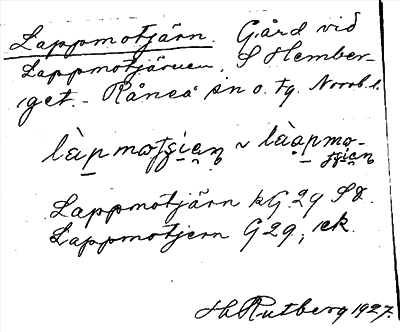 Lappmotjärn. Gård vid
Lappmotjärnen, S Hember-
get. - Råneå sn o. tg. Norrb. l.
làpmotʂi̯ęn̥ ~ làapmo-
tʂi̯ęn̥
Lappmotjärn kG 29 SO.
Lappmotjern G29; ek.
Hd Rutberg 1927.